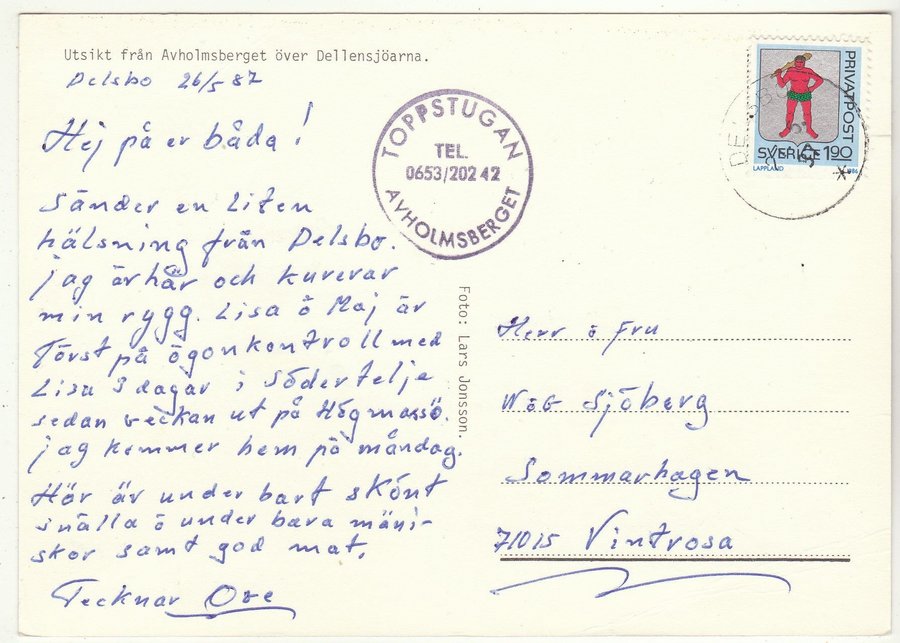 Utsikt från Avholmsberget över Dellensjöarna.
Delsbo 26/5 87
Hej på er båda!
Sänder en liten
hälsning från Delsbo.
jag är här och kurerar
min rygg. Lisa ö Maj är
Först på ögonkontroll med
Lisa 3 dagar i Södertelje
sedan veckan ut på Högmarsö.
jag kommer hem på måndag.
Här är under bart skönt
snälla ö under bara mäni-
skor samt god mat.
Tecknar Ove
TOPPSTUGAN
TEL.
0653/202 42
AVHOLMSBERGET
Foto: Lars Jonsson.
PRIVATPOST
SVERIGE 1.90
LAPPLAND
1986
Herr ö Fru
W ö G Sjöberg
Sommarhagen
71015 Vintrosa